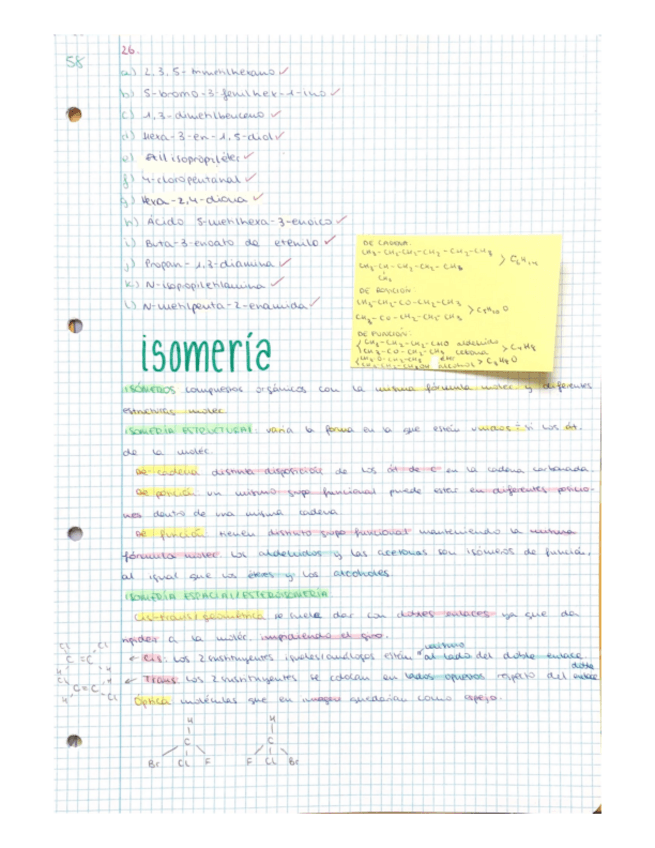 58
26.
a) 2,3,5-trimetilhexano ✓
b) 5-bromo-3-fenilhex-1-ino ✓
c) 1,3-dimetilbenceno ✓
d) Hexa-3-en-1,5-diol ✓
e) etil isopropiléter ✓
f) 4-cloropentanal ✓
g) Hexa-2,4-diona ✓
h) Ácido 5-metilhexa-3-enoico ✓
i) Buta-3-enoato de etenilo ✓
j) Propan-1,3-diamina ✓
k) N-isopropiletilamina ✓
l) N-metilpenta-2-enamida ✓
DE CADENA:
CH3-CH2-CH2-CH2-CH2-CH3
CH3-CH-CH2-CH2-CH3
CH3
> C6H14
DE POSICIÓN
CH3-CH2-CO-CH2-CH3
CH3-CO-CH2-CH2-CH3
> C5H10O
DE FUNCIÓN:
CH3-CH2-CH2-CHO aldehído
CH3-CO-CH2-CH3 cetona
isomería
ISÓMEROS compuestos orgánicos con la misma fórmula molec y diferentes
estructuras molec.
ISOMERÍA ESTRUCTURAL: varía la forma en la que están unidos si los át.
de la moléc.
De cadena distinta disposición de los át de C en la cadena carbonada.
De posición un mismo grupo funcional puede estar en diferentes posicio-
nes dentro de una misma cadena.
De función tienen distinto grupo funcional manteniendo la misma
fórmula molec. Los aldehídos y las acetonas son isómeros de función,
al igual que los éteres y los alcoholes
ISOMERÍA ESPACIAL/ESTEROISOMERIA
Cis-trans/geométrica se suele dar con dobles enlaces ya que da
rigidez a la moléc. impidiendo el giro.
Cis: Los 2 sustituyentes iguales/análogos están "al mismo lado del doble enlace
Trans Los 2 sustituyentes se colocan en lados opuestos respeto del doble enlace
Óptica moléculas que en imagen quedarían como espejo.
Cl Cl
C=C
H H
Cl H
C=C
H Cl
H H
C C
Br Cl F F Cl Br